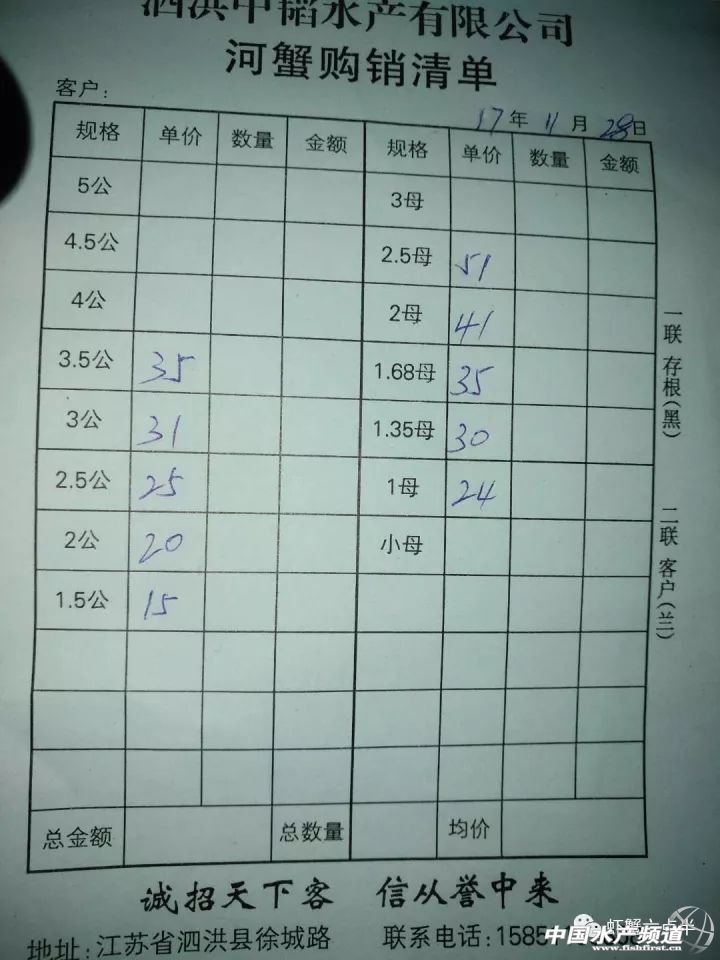 泗洪中韬水产有限公司
河蟹购销清单
客户:
17年11月28日
规格 单价 数量 金额 规格 单价 数量 金额
5公 3母
4.5公 2.5母 51
4公 2母 41
3.5公 35 1.68母 35
3公 31 1.35母 30
2.5公 25 1母 24
2公 20 小母
1.5公 15
总金额 总数量 均价
一联 存根(黑)
二联 客户(兰)
诚招天下客 信从誉中来
地址:江苏省泗洪县徐城路 联系电话:1585
虾蟹六点半
中国水产频道
www.fishfirst.cn